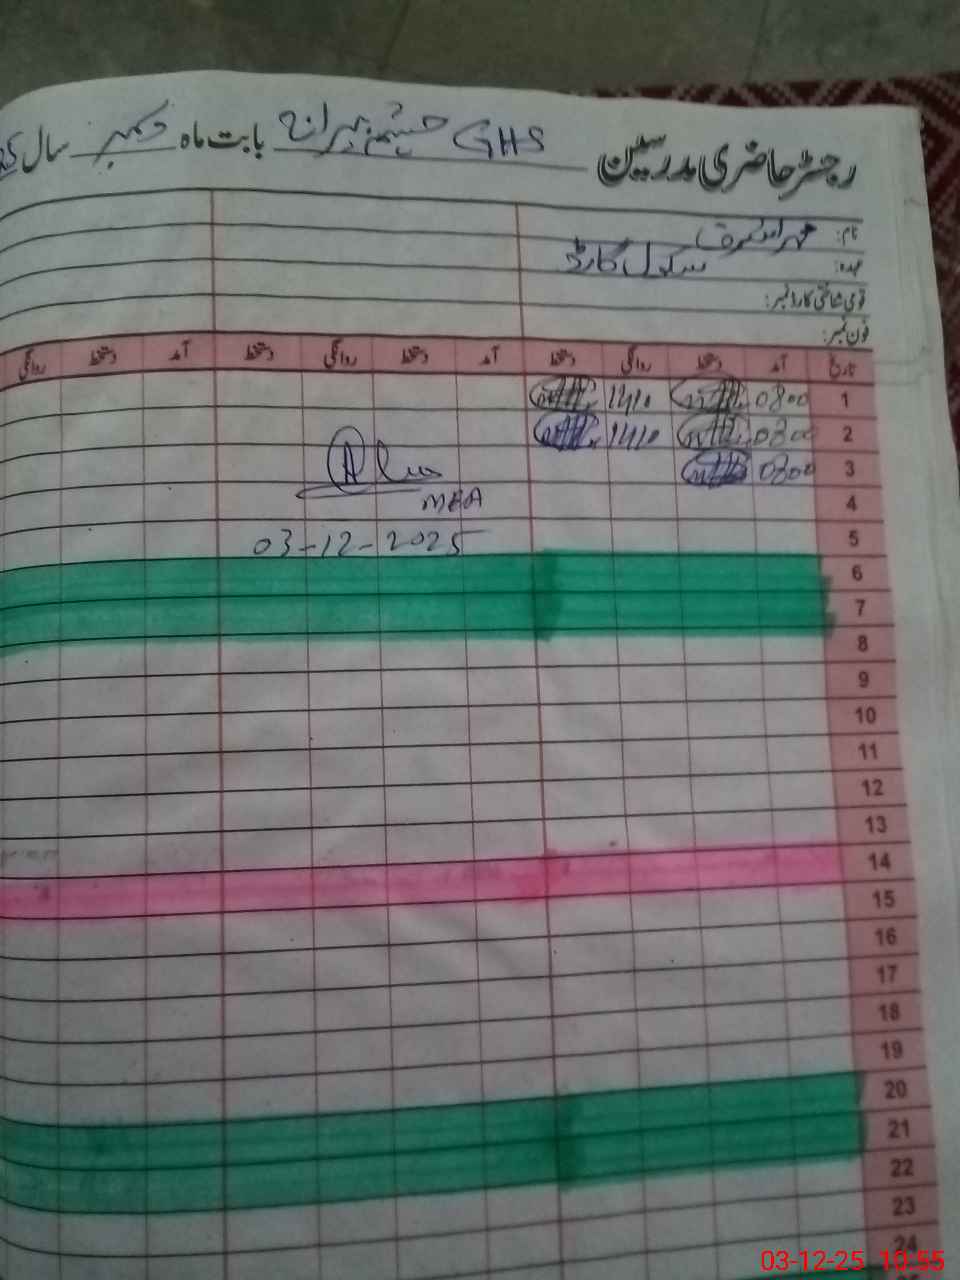 رجسٹر حاضری مدرسین GHS چشمہ بیرانہ بابت ماہ دسمبر سال
نام:
عہدہ: سکول گارڈ
قومی شناختی کارڈ نمبر:
فون نمبر:
تاریخ آمد دستخط روانگی دستخط آمد دستخط روانگی دستخط آمد دستخط روانگی
1 0800 1410
2 0800 1410
3 0800
4 MEA
5 03-12-2025
6
7
8
9
10
11
12
13
14
15
16
17
18
19
20
21
22
23
24
03-12-25 10:55